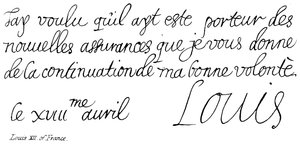 Jay voulu qu'il ayt esté porteur des
nouuelles assurances que je vous donne
de la continuation de ma bonne volonté.
Ce xviii me auril Louis
Louis XIII of France.